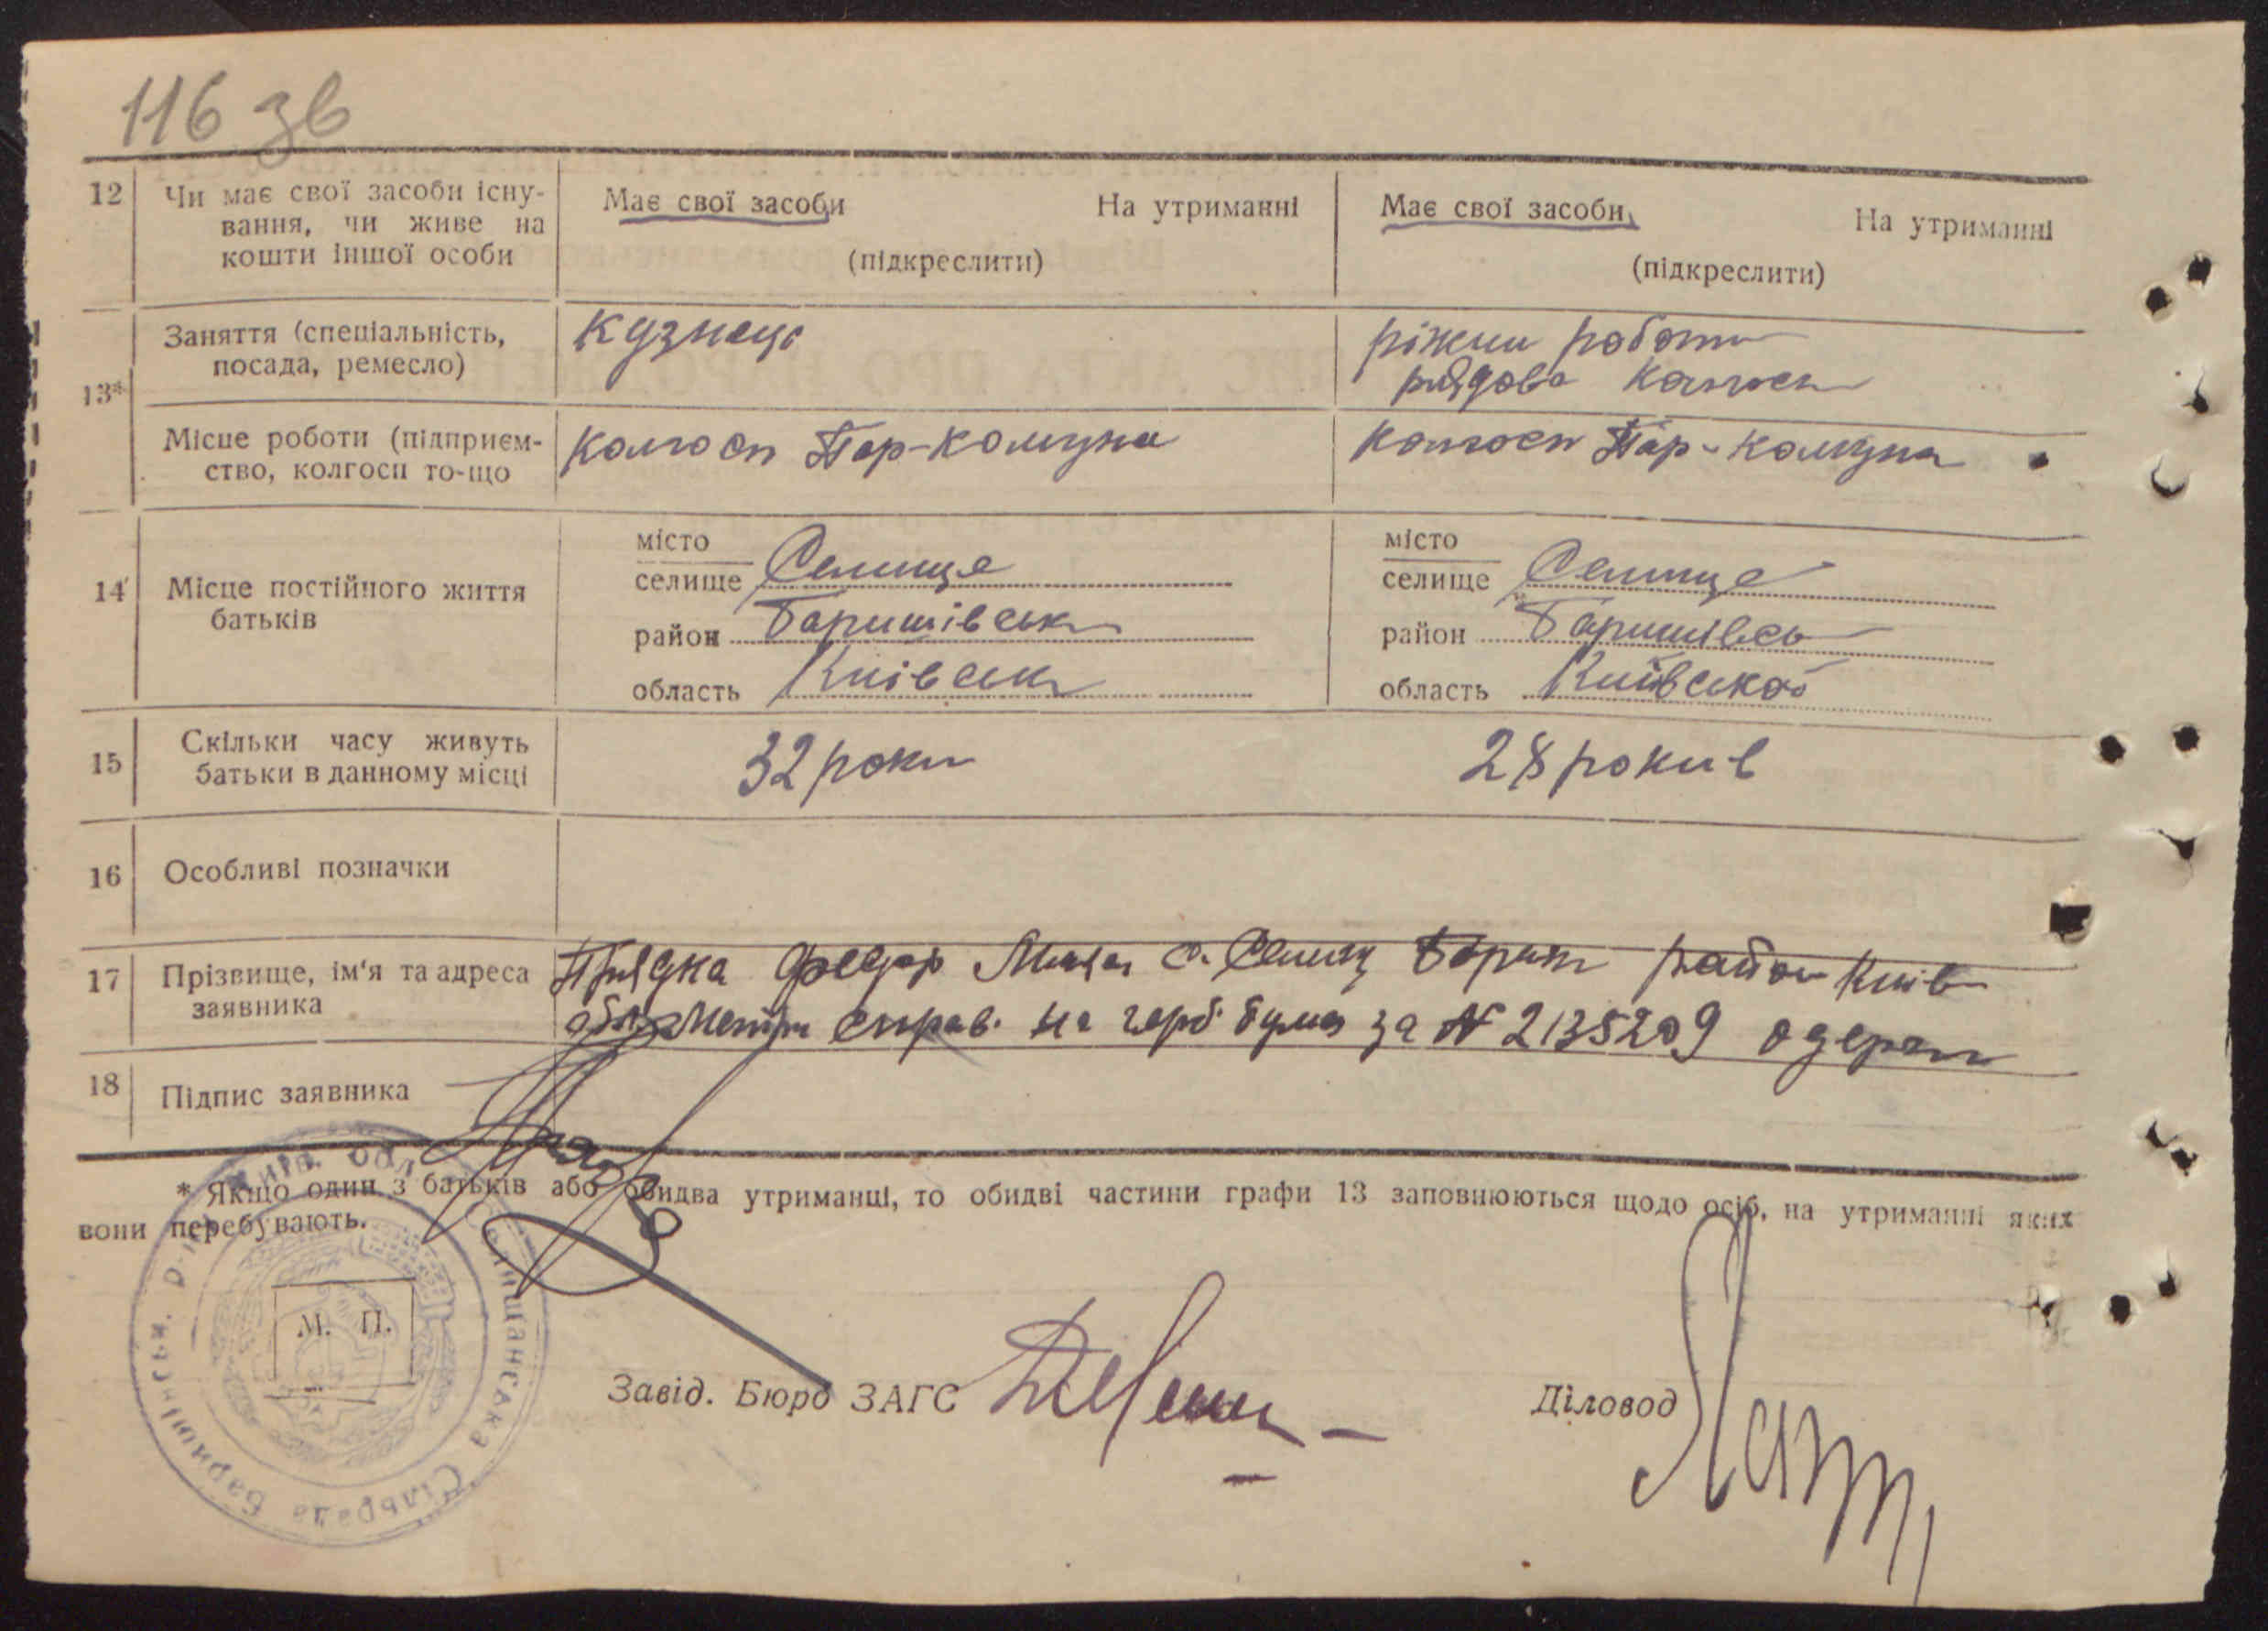 116 зв
12 Чи має свої засоби існу-
вання, чи живе на
кошти іншої особи
Має свої засоби На утриманні
(підкреслити)
Має свої засоби На утриманні
(підкреслити)
13*
Заняття (спеціальність,
посада, ремесло)
Кузнець
ріжни работи
рядова колгосп
Місце роботи (підприєм-
ство, колгосп то-що
Колгосп Пар-комуна
Колгосп Пар-комуна
14 Місце постійного життя
батьків
місто
селище Селище
район Баришівськ
область Київськ
місто
селище Селище
район Баришівсь
область Київської
15 Скільки часу живуть
батьки в данному місці
32 роки
28 роки в
16 Особливі позначки
17 Прізвище, ім'я та адреса
заявника
Прядка Федор с. Селищ Бориш район Київ
справ. на герб. бумаз за № 2135209 одержав
18 Підпис заявника
* Якщо один з батьків або обидва утриманці, то обидві частини графи 13 заповнюються щодо осіб, на утриманні яких
вони перебувають.
Київ. обл. Селищанська Сільрада Баришівськ. р-н
М. П.
Завід. Бюро ЗАГС
Діловод